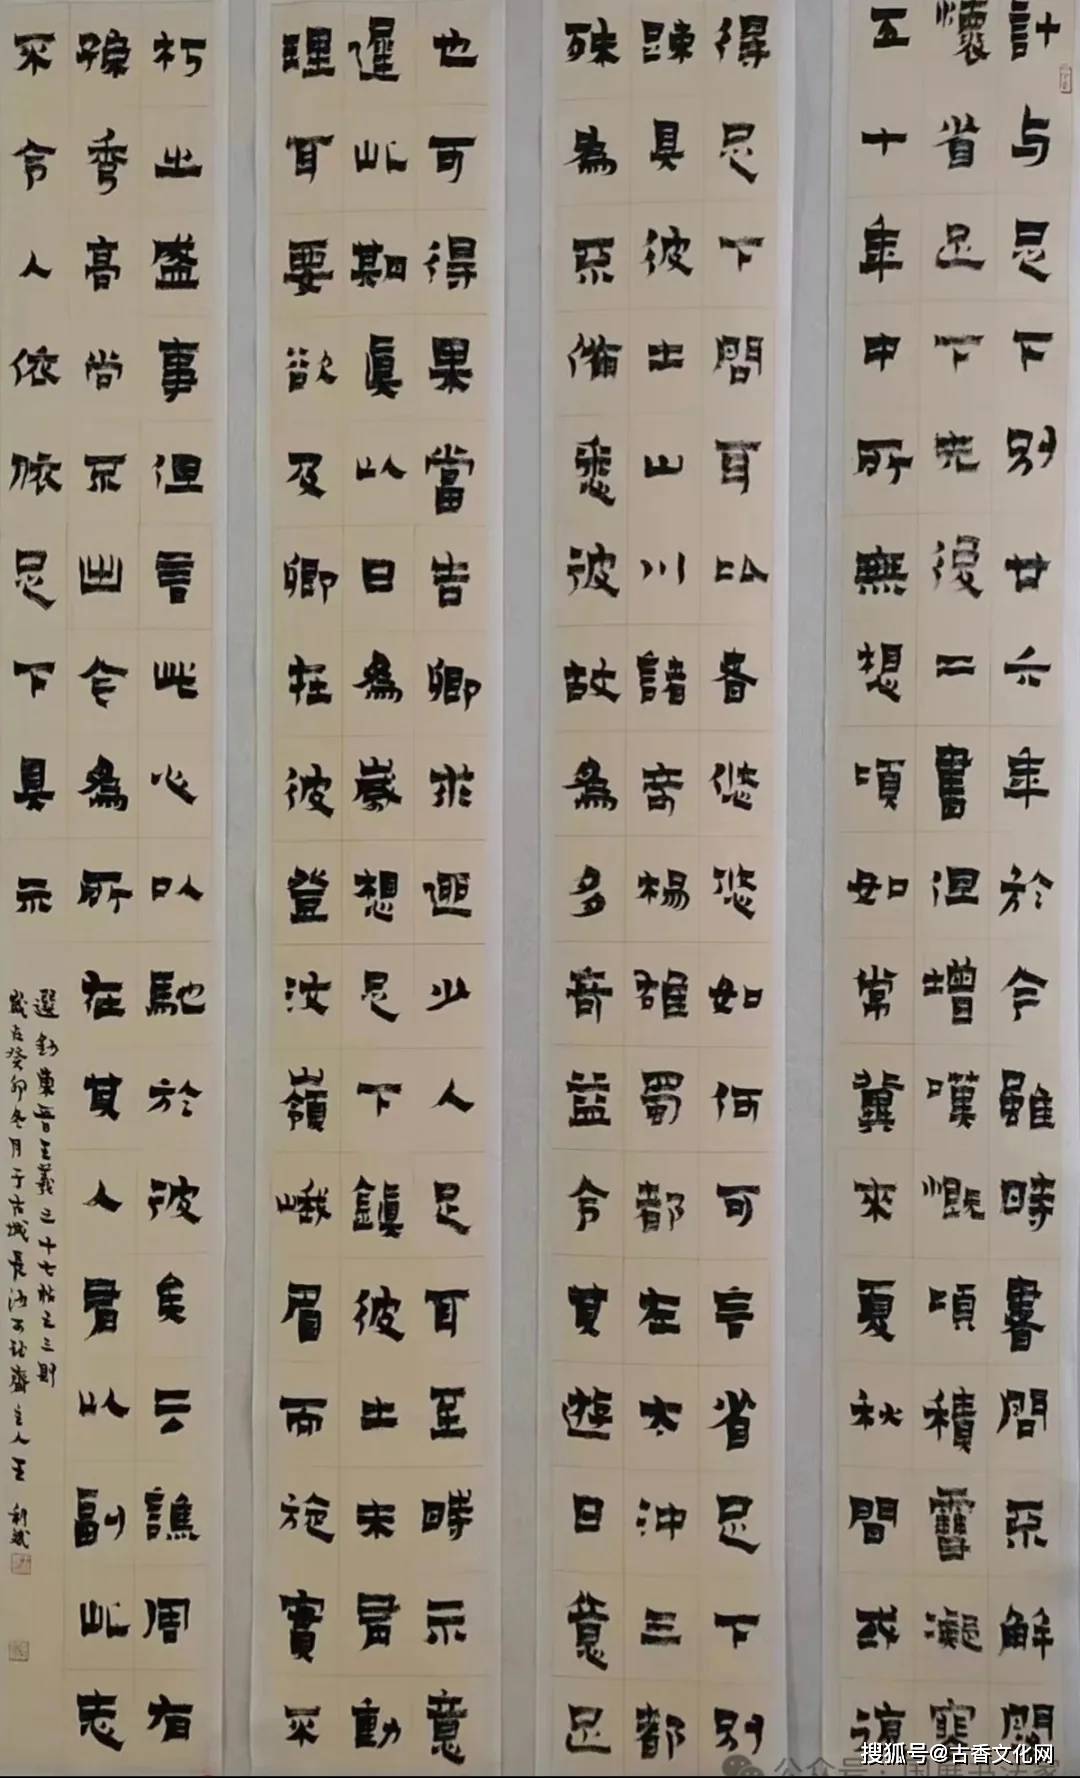 計与足下別廿六年於今雖時書問不解闊
懷省足下先後二書但增嘆慨頃積雪凝寒
五十年中所無想頃如常冀來夏秋間或復
得足下問耳比者悠悠如何可言省足下別
疎具彼土山川諸奇楊雄蜀都左太沖三都
殊為不備悉彼故為多奇益令其遊目意足
也可得果當告卿求迎少人足耳至時示意
遲此期真以日為歲想足下鎮彼土未有動
理耳要欲及卿在彼登汶嶺峨眉而旋實不
朽之盛事但言此心以馳於彼矣云譙周有
孫秀高尚不出今為所在其人有以副此志
不令人依依足下具示
選鈔東晉王羲之十七帖之三則
歲在癸卯冬月于古城長沙齋主人王利斌
搜狐号@古香文化网
公众号·国展书法家